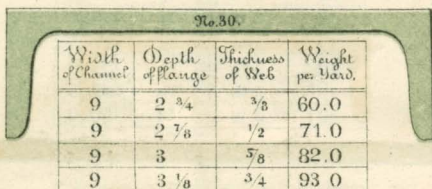 No.30.
Width of Channel Depth of flange Thickness of Web Weight per Yard.
9 2 3/4 3/8 60.0
9 2 7/8 1/2 71.0
9 3 5/8 82.0
9 3 1/8 3/4 93.0